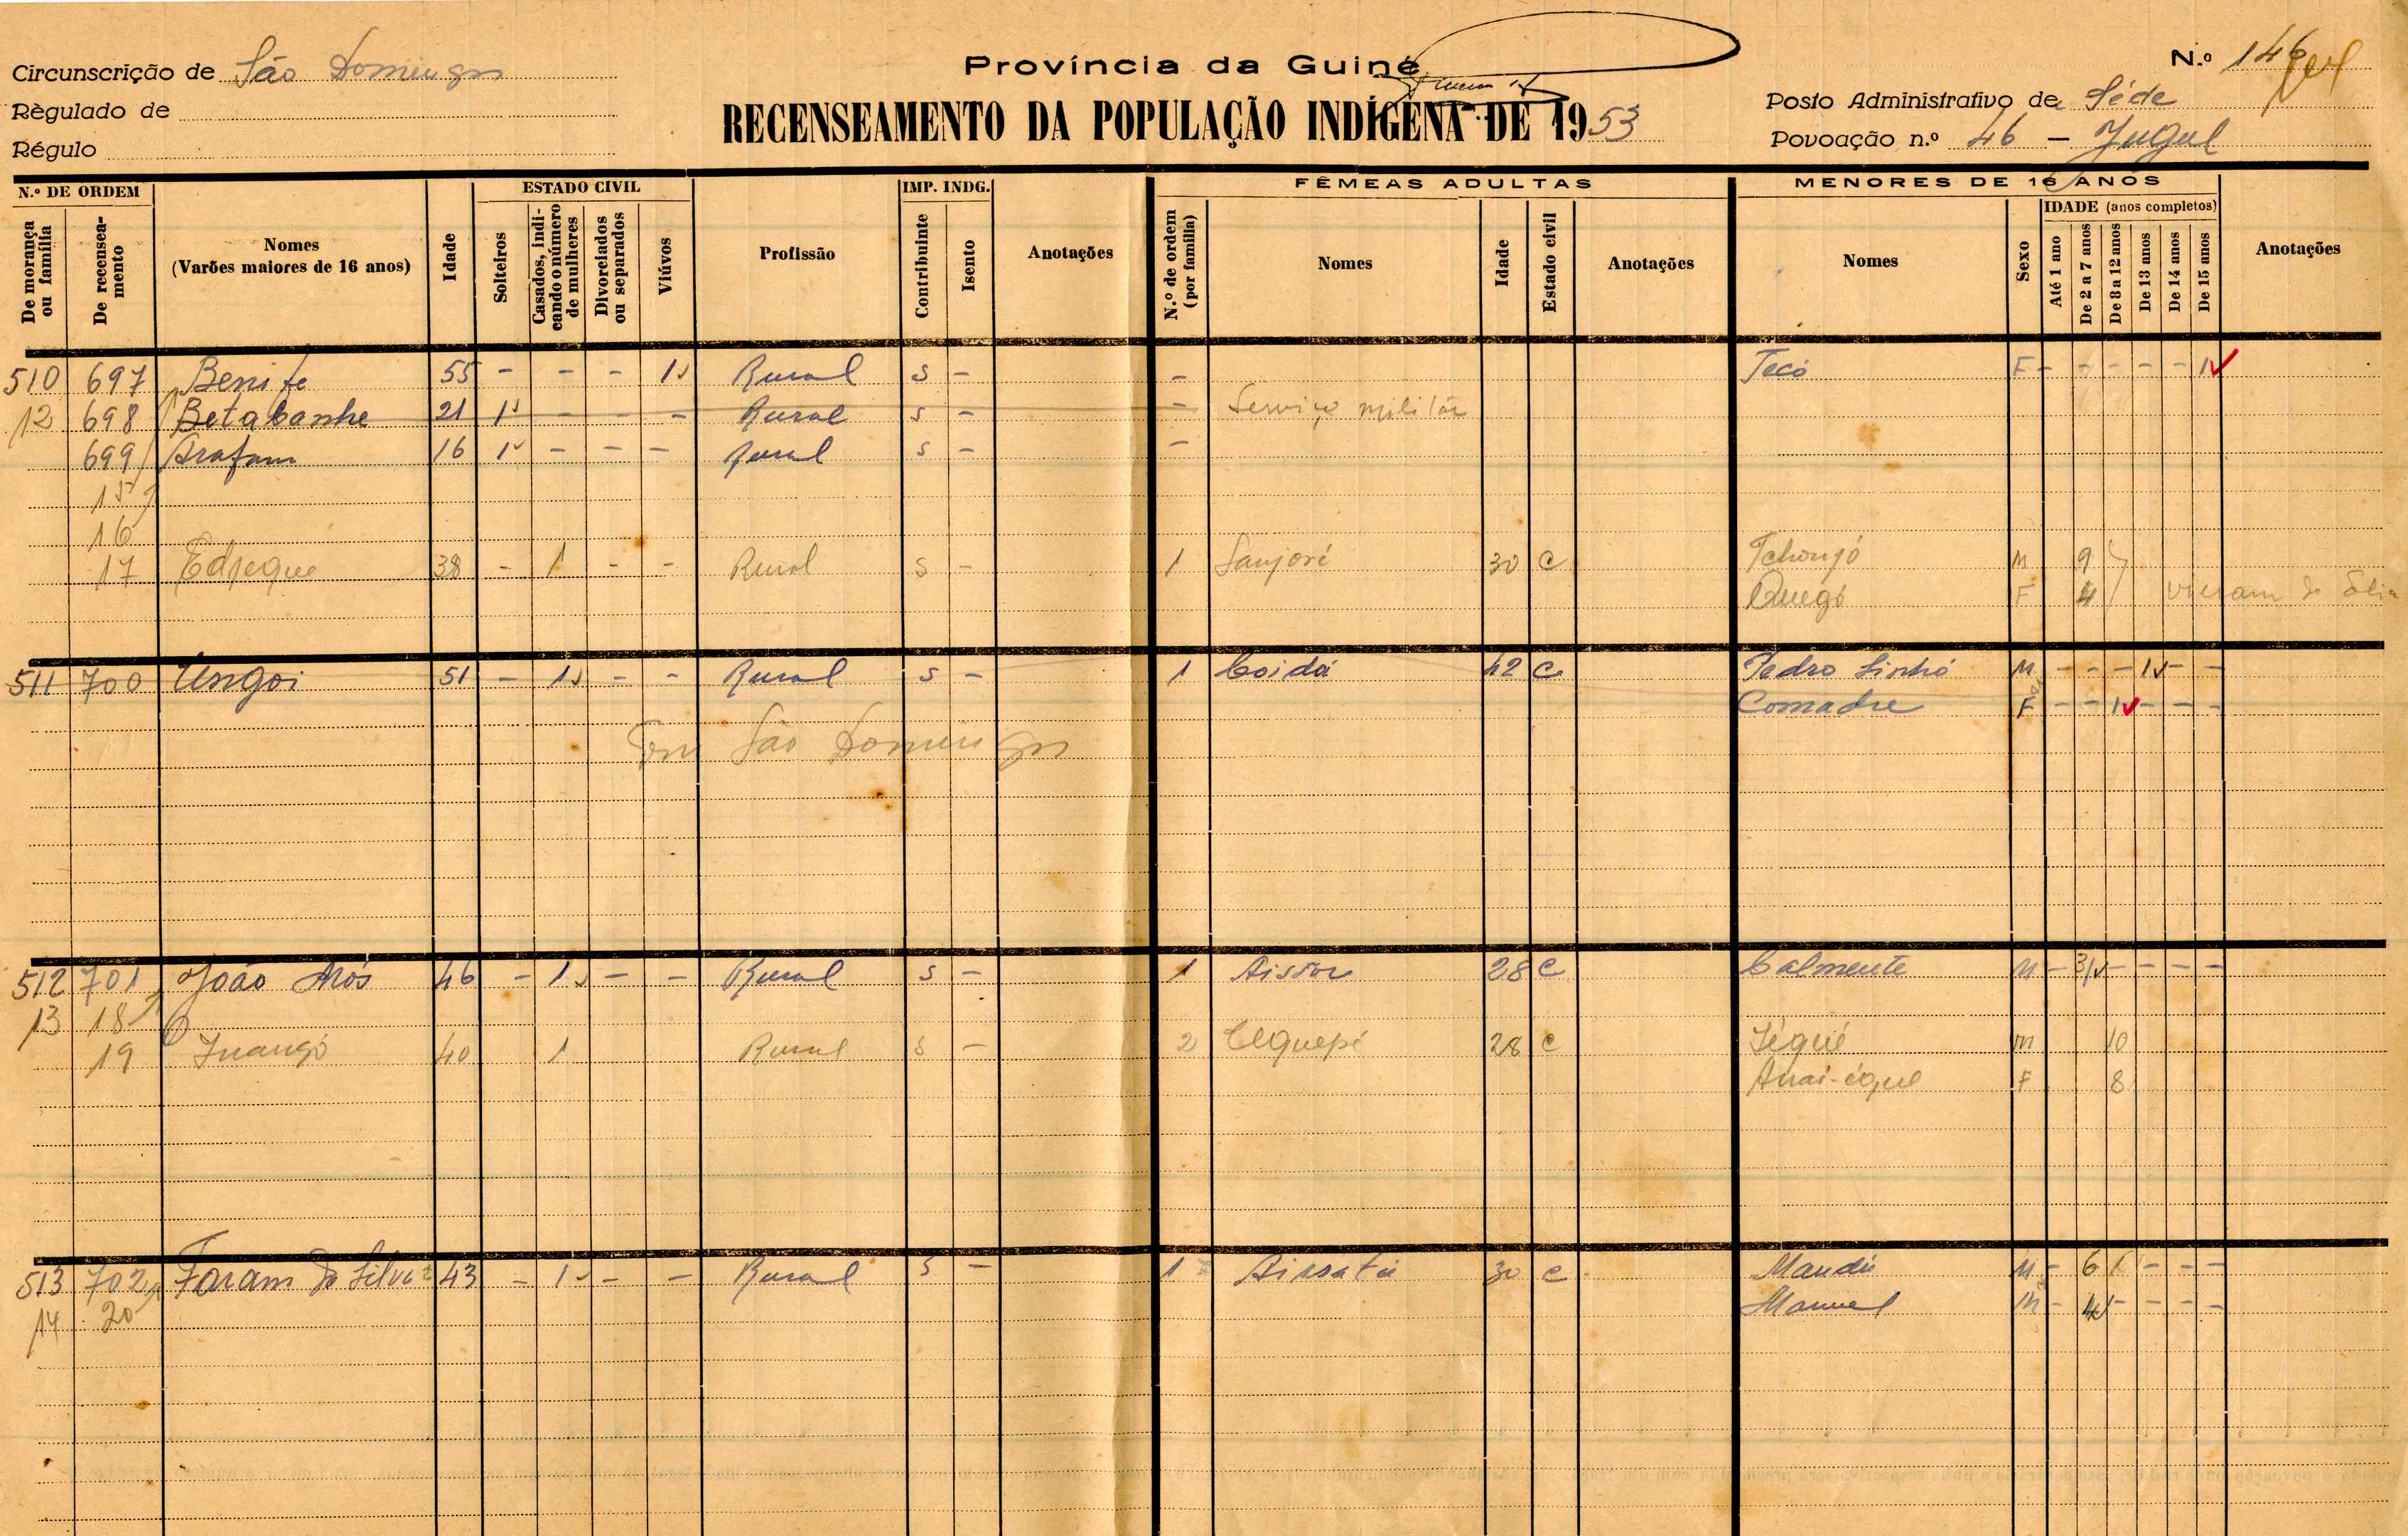 Circunscrição de São Domingos
Règulado de
Régulo
Província da Guiné
RECENSEAMENTO DA POPULAÇÃO INDÍGENA DE 1953
N.º 146
Posto Administrativo de Séde
Povoação n.º 46 - Jugul
N.º DE ORDEM
De morança ou família
De recenseamento
Nomes
(Varões maiores de 16 anos)
Idade
ESTADO CIVIL
Solteiros
Casados, indicando o número de mulheres
Divorciados ou separados
Viúvos
Profissão
IMP. INDG.
Contribuinte
Isento
Anotações
FÊMEAS ADULTAS
N.º de ordem (por família)
Nomes
Idade
Estado civil
Anotações
MENORES DE 16 ANOS
Nomes
Sexo
IDADE (anos completos)
Até 1 ano
De 2 a 7 anos
De 8 a 12 anos
De 13 anos
De 14 anos
De 15 anos
Anotações
510 697 Benife 55 - - - 1 Rural s - - Tecó F - - - - - 1
12 698 Betabanhe 21 1 - - - Rural s - - Serviço militar
699 Arafam 16 1 - - - Rural s - -
15
16
17 Edjeque 38 - 1 - - Rural s - 1 Sanjoré 30 C Tchonjó M 9
Quegó F 4 vieram de
511 700 Ungoi 51 - 1 - - Rural s - 1 Coidá 42 C Pedro Sinhó M - - - 1 - -
Comadre F - - 1 - - -
Em São Domingos
512 701 João Arós 46 - 1 - - Rural s - 1 Aissor 28 C Calmente M - 3 - - - -
13 18
19 Juangó 40 1 Rural s - 2 28 C Jégué m 10
F 8
513 702 Faram da Silva 43 - 1 - - Rural s - 1 Aissatú 30 C Mandú M - 6 - - -
14 20 Manuel M - 4 - - - -